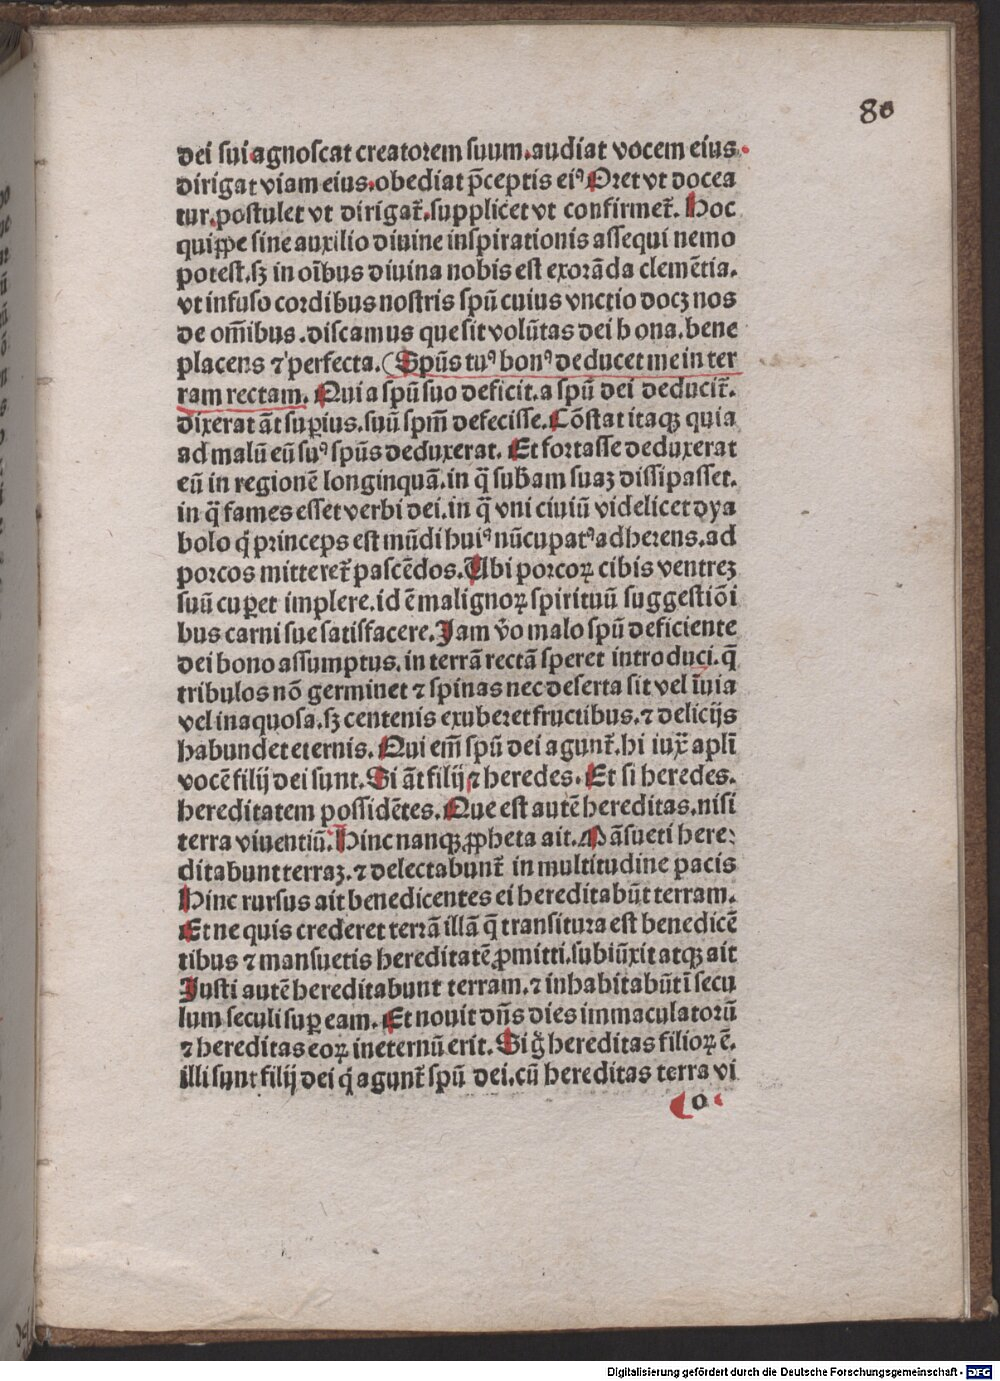 80
dei sui agnoscat creatorem suum. audiat vocem eius.
dirigat viam eius. obediat p̄ceptis eiꝰ Oret vt docea
tur. postulet vt dirigat̄. supplicet vt confirmet̄. Hoc
quiꝑpe sine auxilio diuine inspirationis assequi nemo
potest. sꝫ in oībus diuina nobis est exorāda clemētia.
vt infuso cordibus nostris spū cuius vnctio docꝫ nos
de om̄ibus. discamus que sit volūtas dei bona. bene
placens ⁊ perfecta. (Spūs tuꝰ bonꝰ deducet me in ter
ram rectam. Qui a spū suo deficit. a spū dei deducit̄.
dixerat āt suꝑius. suū spm̄ defecisse. Cōstat itaqꝫ quia
ad malū eū suꝰ spūs deduxerat. Et fortasse deduxerat
eū in regionē longinquā. in q̄ sub̄am suaꝫ dissipasset.
in q̄ fames esset verbi dei. in q̄ vni ciuiū videlicet dya
bolo q̇ princeps est mūdi huiꝰ nūcupatꝰ adherens. ad
porcos mitteret̄ pascēdos. Ubi porcoꝝ cibis ventreꝫ
suū cuꝑet implere. id ē malignoꝝ spirituū suggestiōi
bus carni sue satisfacere. Jam v̄o malo spū deficiente
dei bono assumptus. in terrā rectā speret introduci. q̄
tribulos nō germinet ⁊ spinas nec deserta sit vel īuia
vel inaquosa. sꝫ centenis exuberet fructibus. ⁊ delicijs
habundet eternis. Qui em̄ spū dei agunt̄. hi iux̄ apli̅
vocē filij dei sunt. Si āt filij ⁊ heredes. Et si heredes.
hereditatem possidētes. Que est autē hereditas. nisi
terra viuentiū. Hinc nanqꝫ ꝓpheta ait. Māsueti here:
ditabunt terraꝫ. ⁊ delectabunt̄ in multitudine pacis
Hinc rursus ait benedicentes ei hereditabūt terram.
Et ne quis crederet terrā illā q̄ transitura est benedicē
tibus ⁊ mansuetis hereditatē ꝓmitti. subiūxit atqꝫ ait
Justi autē hereditabunt terram. ⁊ inhabitabūt ī secu
lum seculi suꝑ eam. Et nouit dn̄s dies immaculatorū
⁊ hereditas eoꝝ in eternū erit. Si g̊ hereditas filioꝝ ē.
illi sunt filij dei q̇ agunt̄ spū dei. cū hereditas terra vi
o
Digitalisierung gefördert durch die Deutsche Forschungsgemeinschaft - DFG